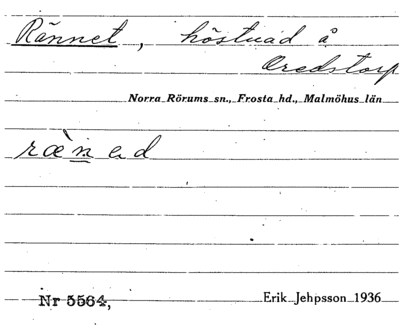 Rännet, höstvad å
Oredstorp
Norra Rörums sn., Frosta hd., Malmöhus län
ræ̀n ad
Nr 5564,
Erik Jehpsson 1936